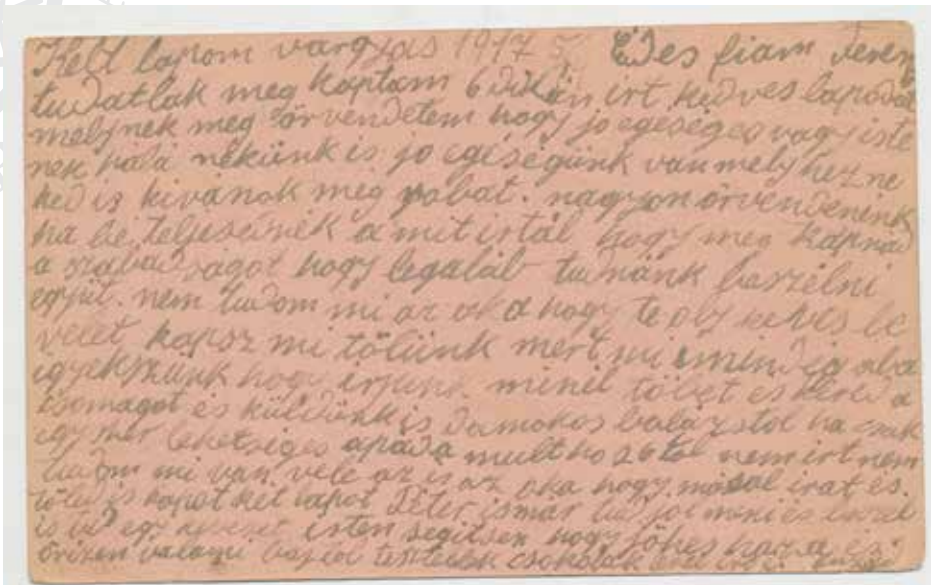 Kelt lapom vargyas 1917 Edes fiam Ferenz
tudatlak meg kaptam 6 dikán irt kedves lapodat
melynek meg örvendetem hogy jo egeseges vagy iste
nek hála nékünk is jo egiségünk van mely hez ne
ked is kivánok meg jobat. nagyon örvendenénk
ha be teljesednék a mit irtál hogy meg kapnád
a szabadságot hogy legaláb tudnánk beszélni
együt. nem tudom mi az oka hogy te oly keves le
velet kapsz mi tölünk mert mi mindig
igyekszünk hogy irjunk minél töbet es kered a
csomagot es küldünk is Damokos balázstol ha csak
egy mer lehetséges apáda mult ho 26 tol nem irt nem
tudom mi van vele az is az oka hogy irat es
töle is kapot két lapot Péter ismár tud
egy isten segitsen hogy jöhes haza es
örizen valami bajtol csokolak